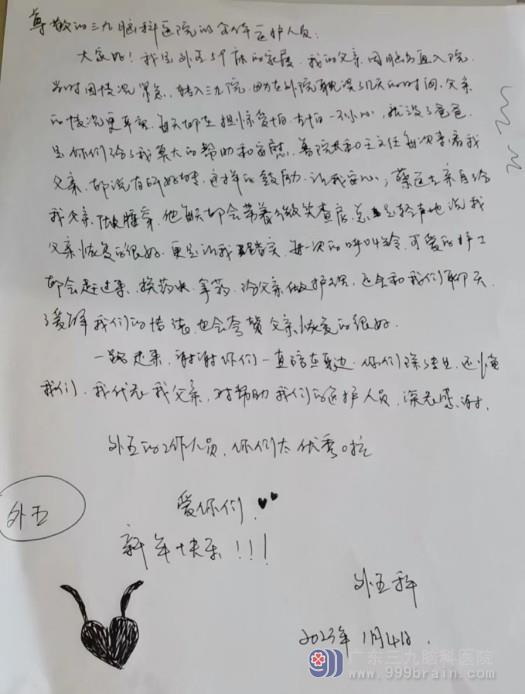 尊敬的三九脑科医院的全体医护人员：
大家好！我是外五5个床的家属，我的父亲因脑出血入院
当时因情况紧急，转入三九院，由于在外院耽误了几天的时间，父亲
的情况更严重，每天都在担惊受怕，害怕一不小心，就没了爸爸
是你们给了我莫大的帮助和安慰，院长和主任每次查看我
父亲，都说有好转，这样的鼓励，让我安心，蔡医生亲自给
我父亲做腰穿，他每天都会带着微笑查房，总是轻声地说我
父亲恢复的很好，更是让我踏实，每一次的呼叫铃，可爱的护士
都会赶过来，换药水，拿药，给父亲做护理，还会和我们聊天
缓解我们的情绪，也会夸赞父亲恢复的很好。
一路走来，谢谢你们一直陪在身边，你们
我们，我代表我父亲，对帮助我们的医护人员，深表感谢，
外五的工作人员，你们太优秀啦
爱你们！
外五
新年快乐！！！
外五科
2023年1月4日.
广东三九脑科医院
www.999brain.com